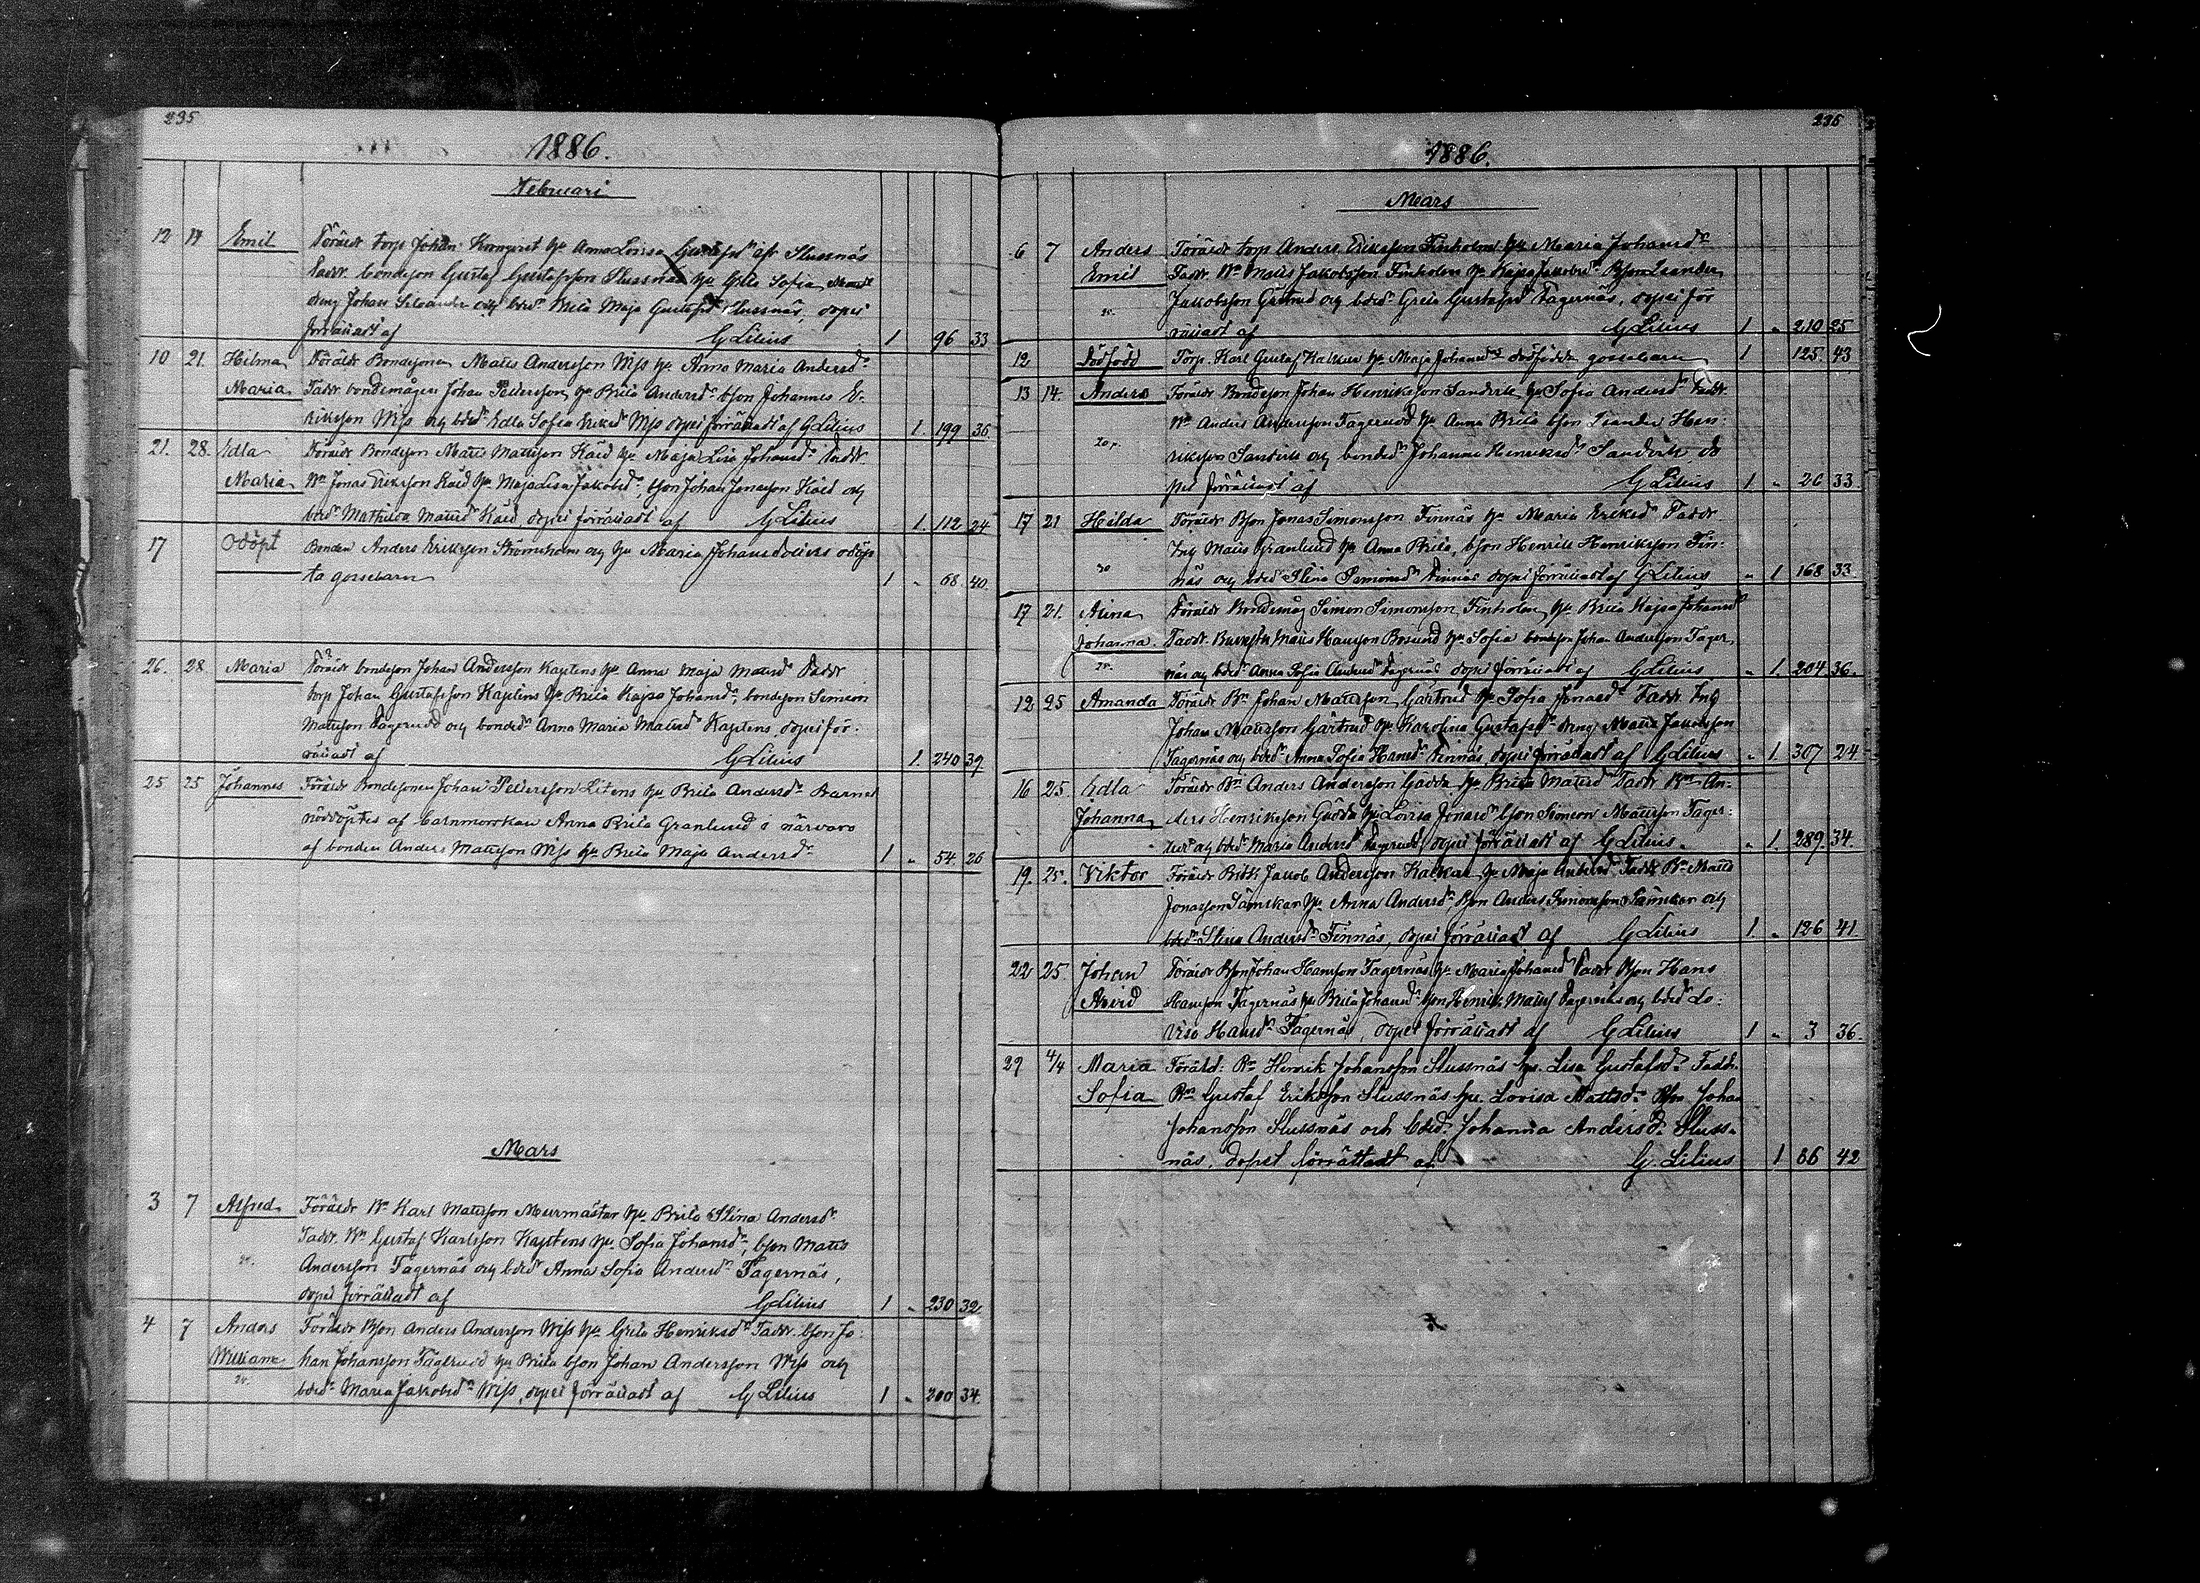 235
1886.
Februari
12 14 Emil Föräldr torp Johan Kronqvist hu Anna Lovisa Gustafsdr Slussnäs
Faddr. bondeson Gustaf Gustafsson Slussnäs hu Greta Sofia
dreng Johan och bdrdr Brita Maja Gustafsdr Slussnäs, dopet
förrättadt af G Lilius 1 96 33
10 21. Hilma Föräldr Bondesonen Matts Andersson Wiss hu Anna Maria Andersdr
Maria Faddr bondemågen Johan Pettersson hu Brita Andersdr bson Johannes E-
riksson Wiss och bdrdr Edla Sofia Eriksdr Wiss dopet förrättadt af G Lilius 1 199 36
21. 28. Edla Föräldr Bondeson Matts Mattsson Käld hu Maja Lisa Johansdr Faddr
Maria Bn Jonas Eriksson Käld hu Maja Lisa Jakobsdr, bson Johan Jonasson Käld och
bdrdr Mathilda Mattsdr Käld, dopet förrättadt af G Lilius 1. 112 24
17 Odöpt Bonden Anders Eriksson Strömsholm och hu Maria Johansdotters odöp
ta gossebarn 1 " 68 40.
26. 28 Maria Föräldr bondeson Johan Andersson Kaptens hu Anna Maja Mattsdr Faddr
torp Johan Gustafsson Kaptens hu Brita Kajsa Johansdr, bondeson Simeon
Mattsson Fagerudd och bondedr Anna Maria Mattsdr Kaptens, dopet för-
rättadt af G Lilius 1. 240 39
25 25 Johannes Föräldr Bondesonen Johan Pettersson Litens hu Brita Andersdr Barnet
nöddöptes af barnmorskan Anna Brita Granlund i närvaro
af bonden Anders Mattsson Wiss hu Brita Maja Andersdr 1 " 54. 26
Mars
3 7 Alfred Föräldr Bn Karl Mattsson Murmästar hu Brita Stina Andersdr
Faddr. Bn Gustaf Karlsson Kaptens hu Sofia Johansdr, bson Matts
Andersson Fagernäs och bdrdr Anna Sofia Andersdr Fagernäs,
dopet förrättadt af G Lilius 1 " 230 32
4 7 Anders Föräldr Bson Anders Andersson Wiss hu Greta Henriksdr Faddr. bson Jo-
William han Johansson Fagerudd hu Brita bson Johan Andersson Wiss och
bdrdr Maria Jakobsdr Wiss, dopet förrättadt af G Lilius 1 " 200 34.
236
1886.
Mars
6 7 Anders Föräldr torp Anders Eriksson Finholm hu Maria Johansdr
Emil Faddr. Bn Matts Jakobsson Finholm hu Kajsa Jakobsdr Bson Leander
Jakobsson Gertrud och bdrdr Greta Gustafsdr Fagernäs, dopet för
rättadt af G Lilius 1 " 210 25
12 Dödfödd Torp. Karl Gustaf Kalkar hu Maja Johansdrs dödfödda gossebarn 1 125. 43
13 14. Anders Föräldr Bondeson Johan Henriksson Sandvik hu Sofia Andersdr Faddr.
Bn Anders Andersson Fagerudd hu Anna Brita bson Leander Hen-
riksson Sandvik och bondedr Johanna Henriksdr Sandvik do
pet förrättadt af G Lilius 1 " 26 33
17 21 Hilda Föräldr Bson Jonas Simonsson Finnäs hu Maria Eriksdr Faddr
Ing Matts Granlund hu Anna Brita, bson Henrik Henriksson Fin-
näs och bdrdr Stina Simonsdr Finnäs dopet förrättadt af G Lilius " 1 168 33
17 21. Alina Föräldr Bondemåg Simon Simonsson Finholm hu Brita Kajsa Johansdr
Johanna Faddr. Matts Hansson Bosund hu Sofia bondeson Johan Andersson Fager
näs och bdrdr Anna Sofia Andersdr Fagernäs dopet förrättadt af G Lilius " 1 204 36.
12 25 Amanda Föräldr Bn Johan Mattsson Gertrud hu Sofia Jonasdr Faddr Ing
Johan Mattsson Gertrud hu Karolina Gustafsdr dreng Matts Jakobsson
Fagernäs och bdrdr Anna Sofia Hansdr Finnäs, dopet förrättadt af G Lilius " 1. 307 24
16 25. Edla Föräldr Bn Anders Andersson Gädda hu Brita Mattsdr Faddr Bn An-
Johanna ders Henriksson Gädda hu Lovisa Jonasdr bson Simeon Mattsson Fager-
och bdrdr Maria Andersdr Fagerudd, dopet förrättadt af G Lilius. " 1. 289. 34.
19. 25. Viktor Föräldr Jakob Andersson Kalkar hu Maja Andersdr Faddr Bn Matts
Jonasson Sämskar hu Anna Andersdr, Bson Anders Simonsson Sämskar och
bdrdr Stina Andersdr Finnäs, dopet förrättadt af G Lilius 1. " 126 41
22 25 Johan Föräldr Bson Johan Hansson Fagernäs hu Maria Johansdr Faddr Bson Hans
Arvid Hansson Fagernäs hu Brita Johansdr bson Henrik Matts Fagernäs och bdrdr Lo-
visa Hansdr Fagernäs, dopet förrättadt af G Lilius 1 " 3 36.
29 4/4 Maria Föräld: Bn Henrik Johansson Slussnäs hu. Lisa Gustafsdr. Faddr.
Sofia Bn Gustaf Eriksson Slussnäs hu. Lovisa Mattsdr Bson Johan
Johansson Slussnäs och bdrdr Johanna Andersdr. Sluss-
näs, dopet förrättadt af G. Lilius 1 86 42